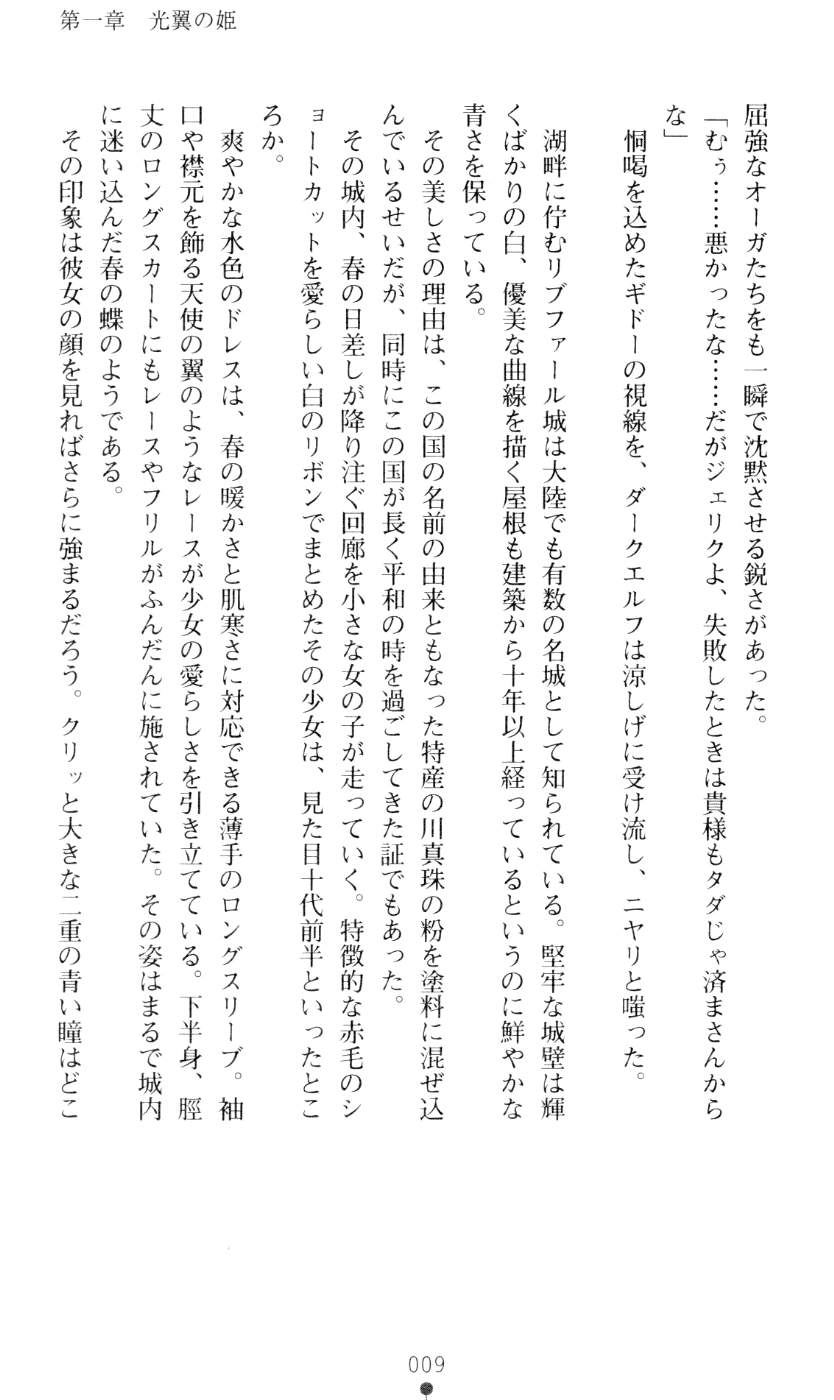 第一章　光翼の姫
屈強なオーガたちをも一瞬で沈黙させる鋭さがあった。
「むぅ……悪かったな……だがジェリクよ、失敗したときは貴様もタダじゃ済まさんから
な」
　恫喝を込めたギドーの視線を、ダークエルフは涼しげに受け流し、ニヤリと嗤った。
　湖畔に佇むリブファール城は大陸でも有数の名城として知られている。堅牢な城壁は輝
くばかりの白、優美な曲線を描く屋根も建築から十年以上経っているというのに鮮やかな
青さを保っている。
　その美しさの理由は、この国の名前の由来ともなった特産の川真珠の粉を塗料に混ぜ込
んでいるせいだが、同時にこの国が長く平和の時を過ごしてきた証でもあった。
　その城内、春の日差しが降り注ぐ回廊を小さな女の子が走っていく。特徴的な赤毛のシ
ョートカットを愛らしい白のリボンでまとめたその少女は、見た目十代前半といったとこ
ろか。
　爽やかな水色のドレスは、春の暖かさと肌寒さに対応できる薄手のロングスリーブ。袖
口や襟元を飾る天使の翼のようなレースが少女の愛らしさを引き立てている。下半身、脛
丈のロングスカートにもレースやフリルがふんだんに施されていた。その姿はまるで城内
に迷い込んだ春の蝶のようである。
　その印象は彼女の顔を見ればさらに強まるだろう。クリッと大きな二重の青い瞳はどこ
009